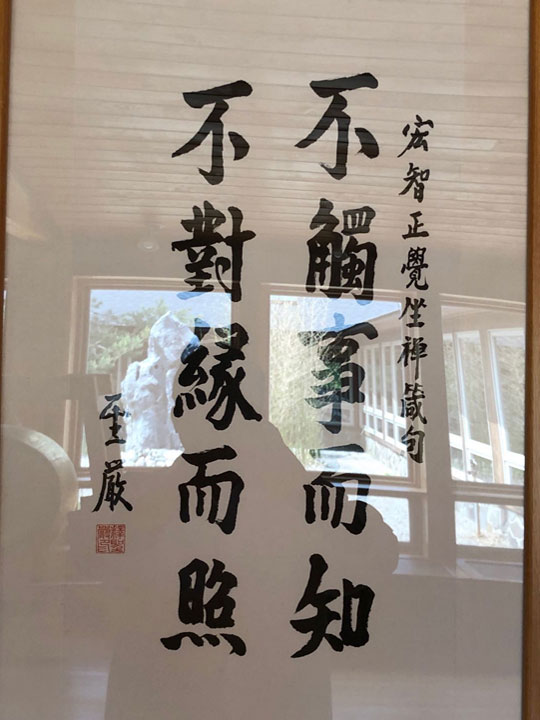 宏智正覺坐禅箴句
不觸事而知
不對緣而照
聖嚴